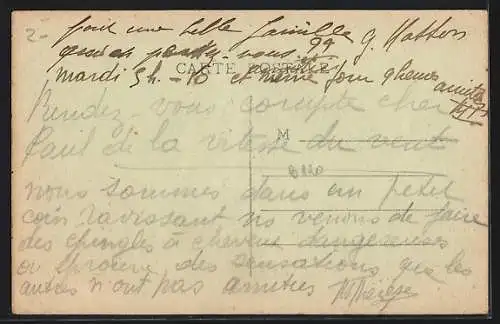 2-
font une belle famille G. Mattou
vous 99
mardi 5h-10 et même jour 9 heures amitiés
CARTE POSTALE
Rendez-vous compte cher
Paul de la vitesse du vent
M
nous sommes dans un petit
coin ravissant ns venons de faire
des épingles à cheveux dangereuses
on éprouve des sensations que les
autres n'ont pas amitiés M Thérèse